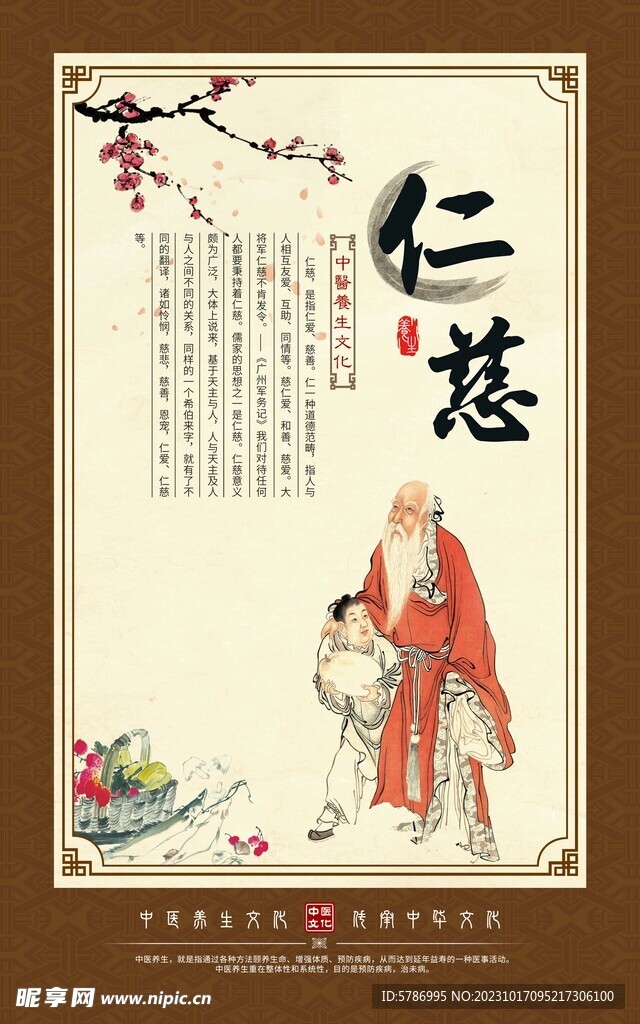 仁慈
養生
中醫養生文化
仁慈，是指仁爱、慈善。仁一种道德范畴，指人与
人相互友爱、互助、同情等。慈仁爱、和善、慈爱。大
将军仁慈不肯发令。——《广州军务记》我们对待任何
人都要秉持着仁慈。儒家的思想之一是仁慈。仁慈意义
颇为广泛，大体上说来，基于天主与人，人与天主及人
与人之间不同的关系，同样的一个希伯来字，就有了不
同的翻译，诸如怜悯，慈悲，慈善，恩宠，仁爱、仁慈
等。
中医养生文化
中医文化
传承中华文化
中医养生，就是指通过各种方法颐养生命、增强体质、预防疾病，从而达到延年益寿的一种医事活动。
中医养生重在整体性和系统性，目的是预防疾病，治未病。
昵享网 www.nipic.cn
ID:5786995 NO:20231017095217306100